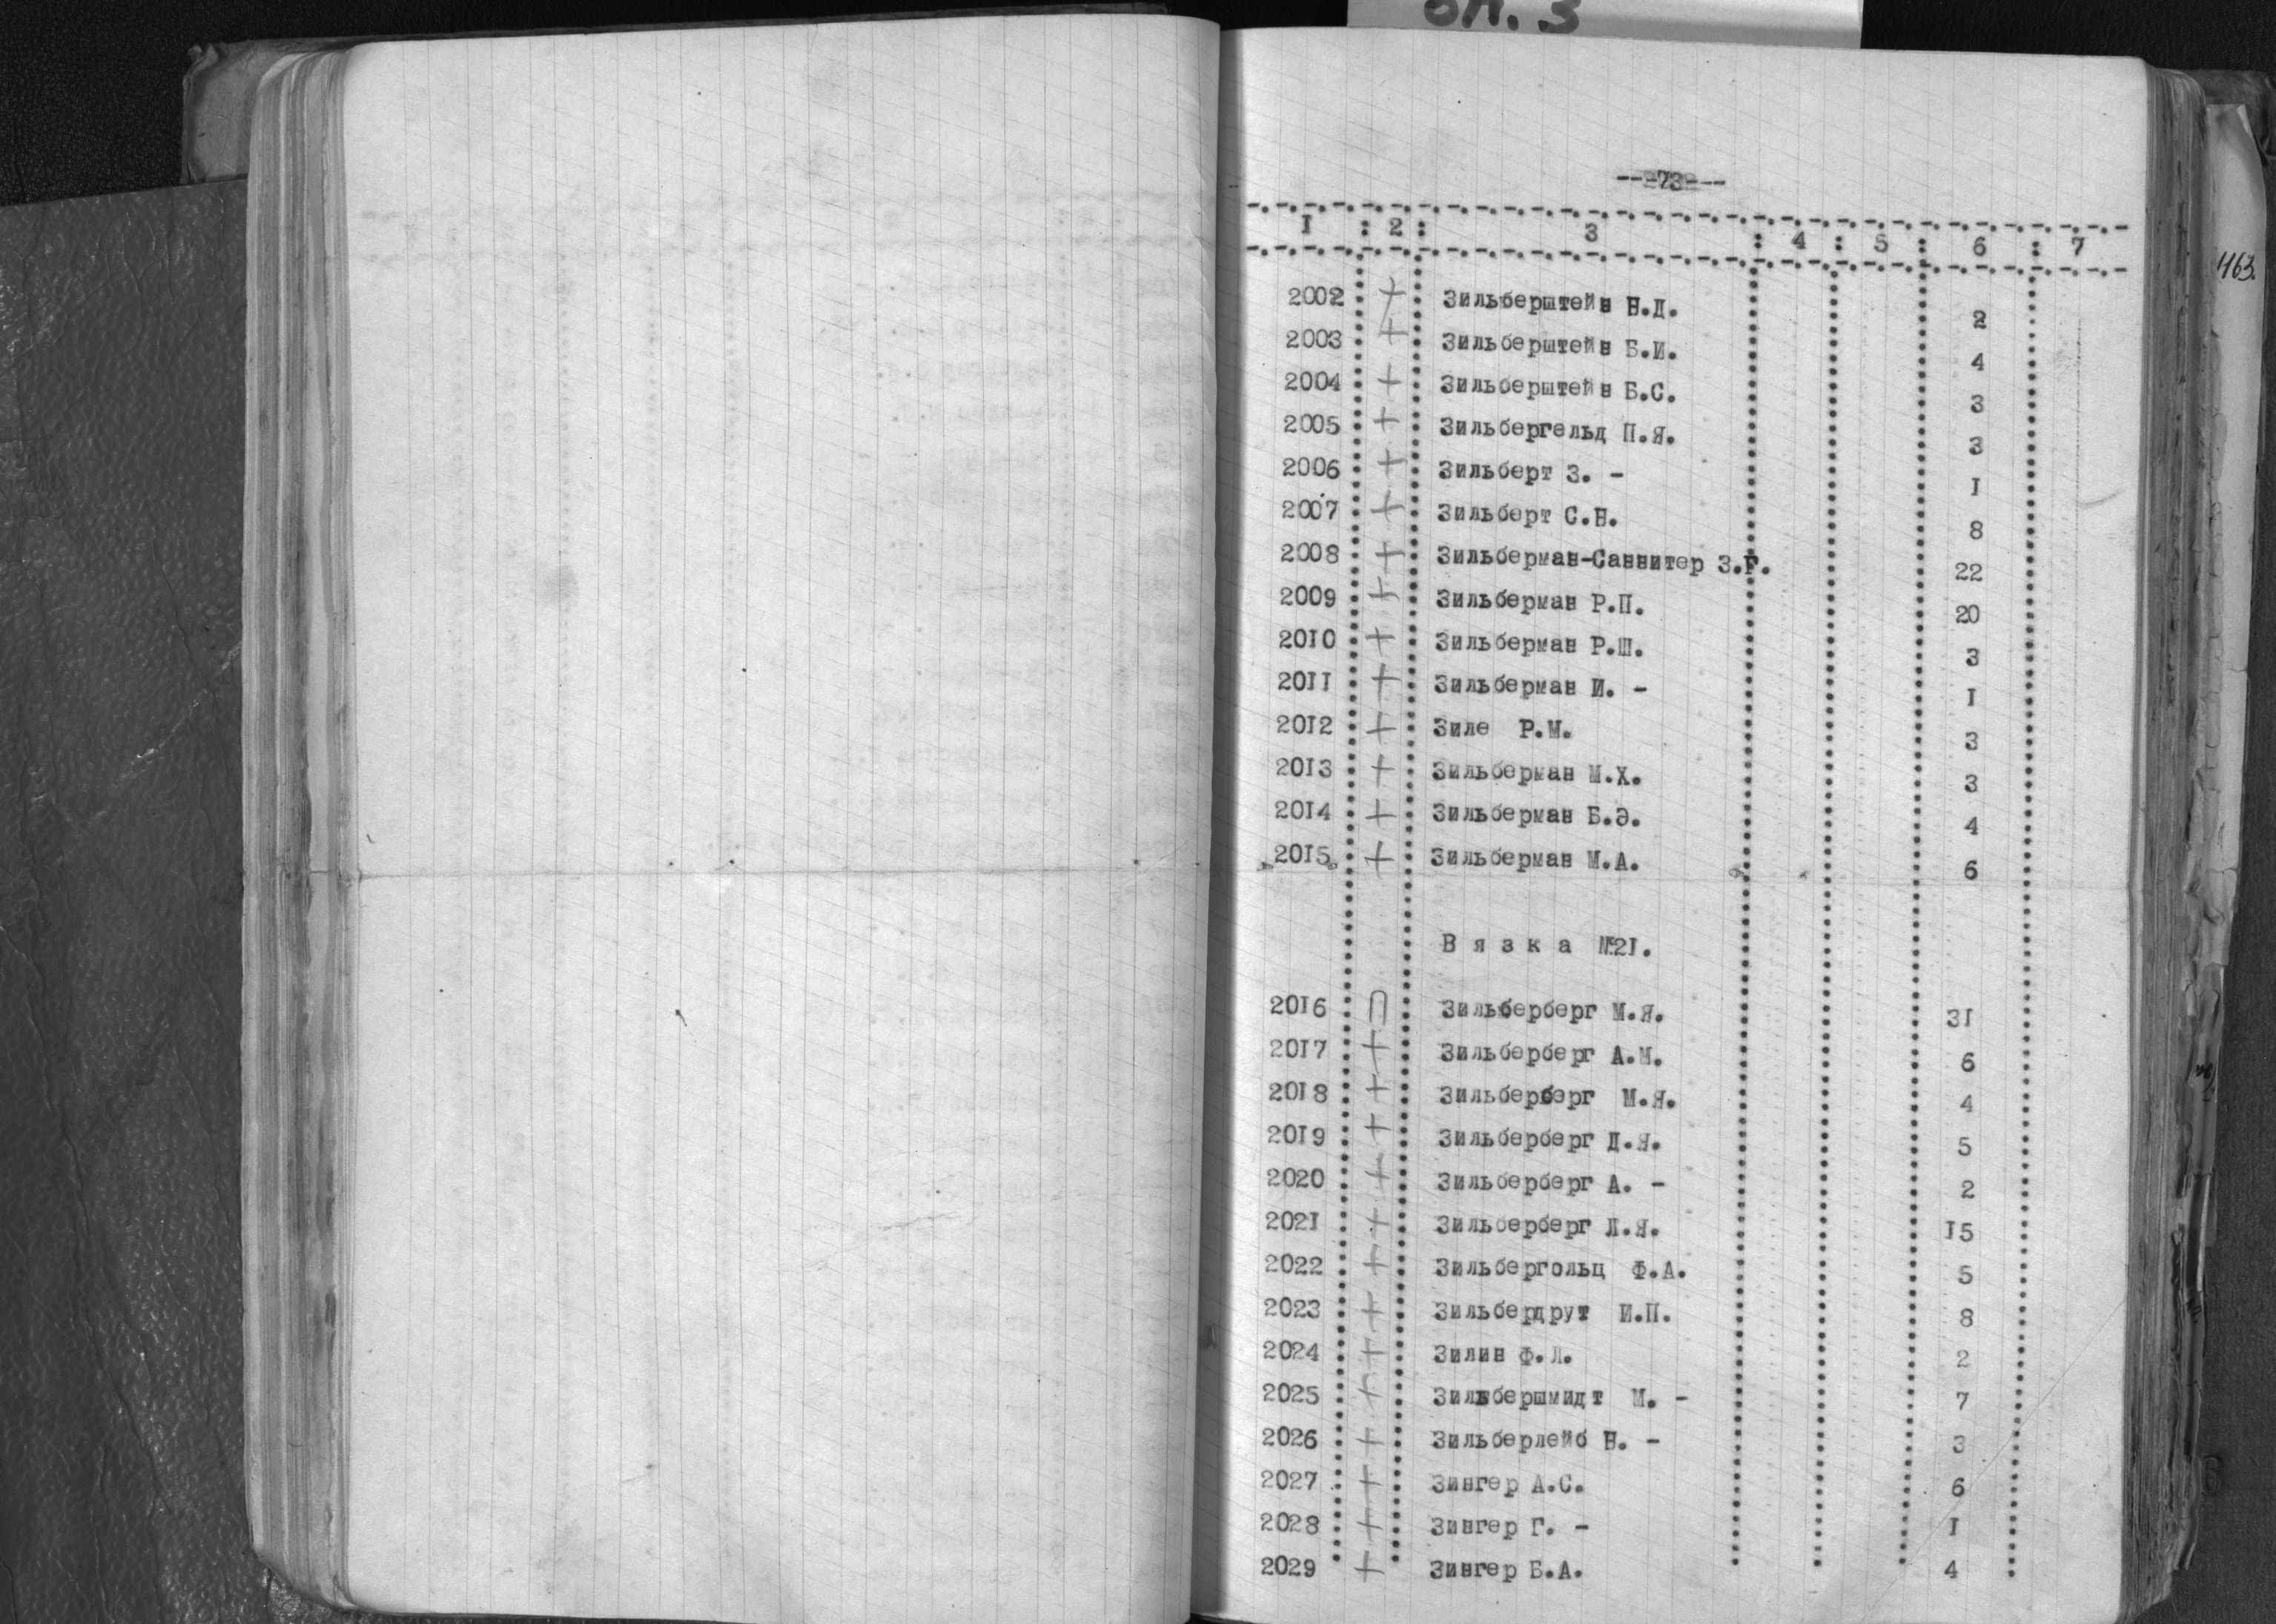 оп. 3
---73---
I : 2 : 3 : 4 : 5 : 6 : 7
463.
2002 + Зильберштейн Н.Д. 2
2003 + Зильберштейн Б.И. 4
2004 + Зильберштейн Б.С. 3
2005 + Зильбергельд П.Я. 3
2006 + Зильберт З. - I
2007 + Зильберт С.Н. 8
2008 + Зильберман-Саннитер З.Г. 22
2009 + Зильберман Р.П. 20
20I0 + Зильберман Р.Ш. 3
20II + Зильберман И. - I
20I2 + Зиле Р.М. 3
20I3 + Зильберман М.Х. 3
20I4 + Зильберман Б.Э. 4
20I5 + Зильберман М.А. 6
В я з к а №2I.
20I6 П Зильберберг М.Я. 3I
20I7 + Зильберберг А.М. 6
20I8 + Зильберберг М.Я. 4
20I9 + Зильберберг Д.Я. 5
2020 + Зильберберг А. - 2
202I + Зильберберг Л.Я. I5
2022 + Зильбергольц Ф.А. 5
2023 + Зильбердрут И.П. 8
2024 + Зилин Ф.Л. 2
2025 + Зильбершмидт М. - 7
2026 + Зильберлейб Н. - 3
2027 + Зингер А.С. 6
2028 + Зингер Г. - I
2029 + Зингер Б.А. 4